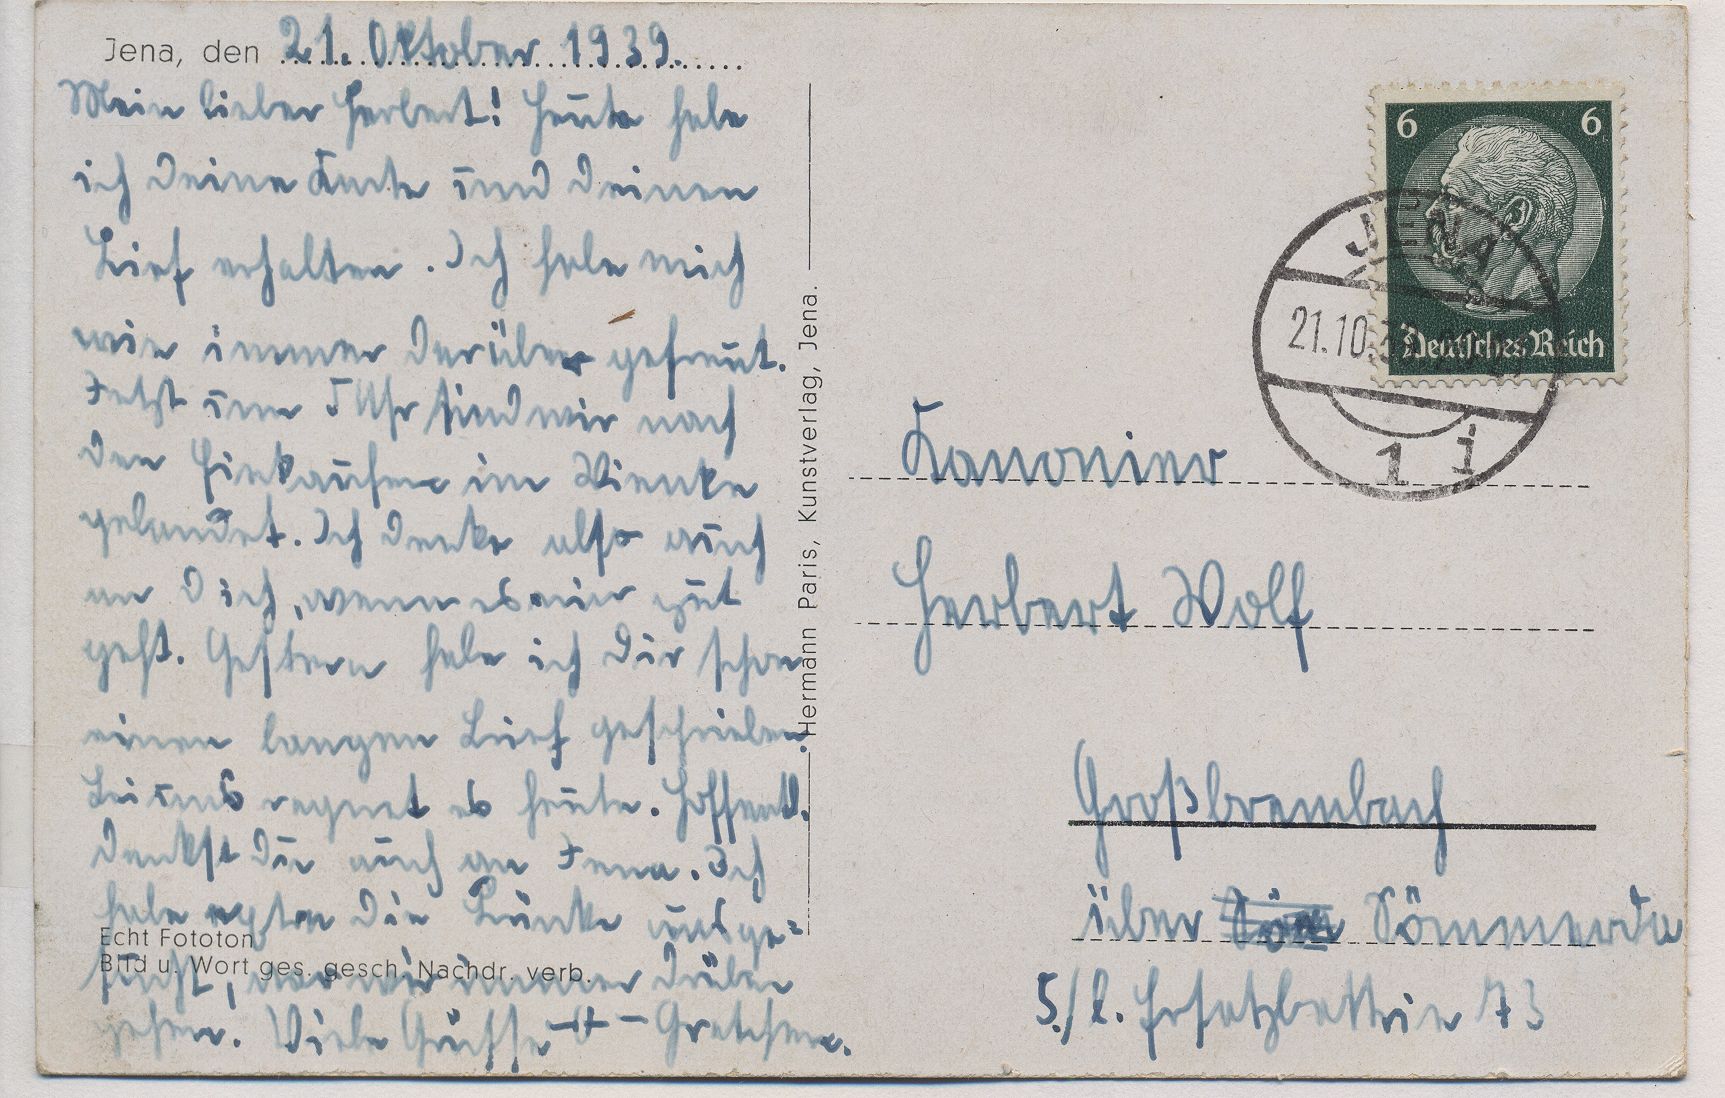 Jena, den 21. Oktober 1939.
Mein lieber Herbert! Heute habe
ich Deine Karte und Deinen
Brief erhalten. Ich habe mich
wie immer darüber gefreut.
Jetzt um 5 Uhr sind wir nach
den Einkaufen im
gelandet. Ich denke also auch
an Dich, wenn es mir gut
geht. Gestern habe ich Dir schon
einen langen Brief geschrieben.
Bei uns regnet es heute. Hoffentl.
denkst Du auch an Jena. Ich
habe die Brücke ausge=
sucht, wo wir immer drüber
gehen. Viele Grüsse Gretchen.
Echt Fototon
Bild u. Wort ges. gesch. Nachdr. verb.
Hermann Paris, Kunstverlag, Jena.
6 6
Deutsches Reich
JENA
21.10.39
1 i
Kanonier
Herbert Wolf
Großbrembach
über Sömmerda
5./l. Ersatzbattrie 73